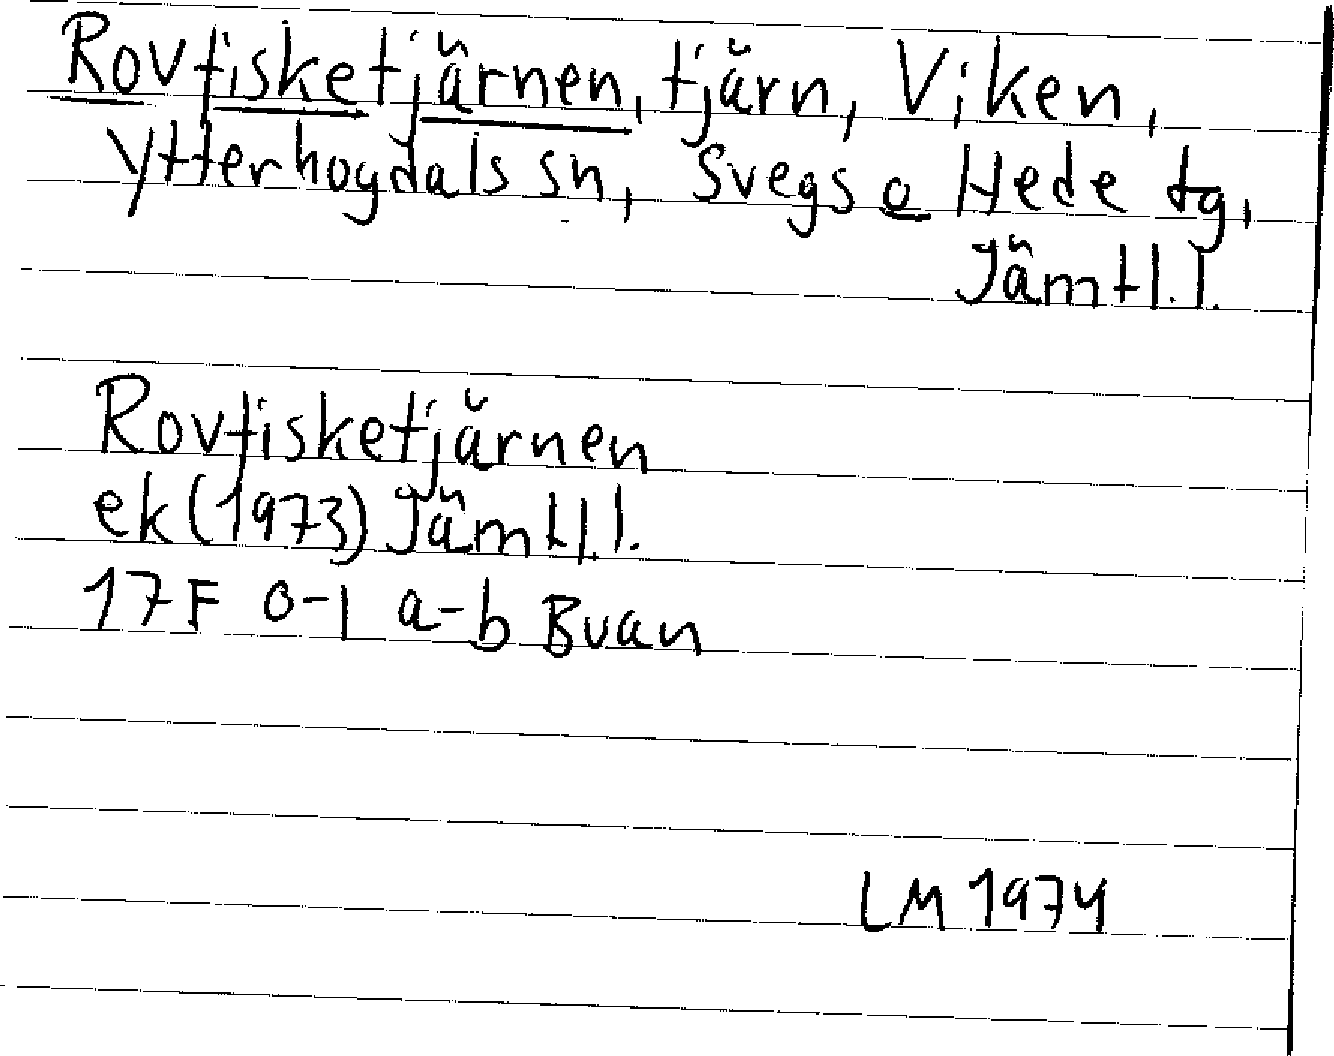 Rovfisketjärnen, tjärn, Viken,
Ytterhogdals sn, Svegs o Hede tg,
Jämtl.l.
Rovfisketjärnen
ek (1973) Jämtl.l.
17F 0-1 a-b Buan
LM 1974